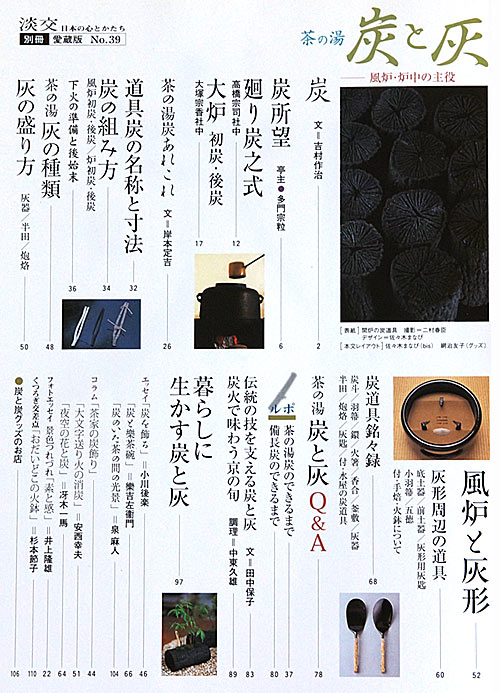 淡交
日本の心とかたち
別冊 愛蔵版 No.39
茶の湯 炭と灰
風炉・炉中の主役
[表紙] 開炉の炭道具 撮影＝二村春臣
デザイン＝佐々木まなび
[本文レイアウト] 佐々木まなび(bis) 網治友子(グッズ)
炭 文＝吉村作治 2
炭所望 亭主●多門宗粒 6
廻り炭之式 高橋宗司社中 12
大炉 初炭・後炭 大塚宗香社中 17
茶の湯炭あれこれ 文＝岸本定吉 26
道具炭の名称と寸法 32
炭の組み方 34
風炉初炭・後炭／炉初炭・後炭
下火の準備と後始末 36
茶の湯 灰の種類 48
灰の盛り方 灰器／半田／炮烙 50
風炉と灰形 52
灰形周辺の道具 60
底土器／前土器／灰形用灰匙
小羽箒／五徳
付・手焙・火鉢について
炭道具銘々録 68
炭斗／羽箒／鐶／火箸／香合／釜敷／灰器
半田／炮烙／灰匙／付・水屋の炭道具
茶の湯 炭と灰 Q&A 78
ルポ
茶の湯炭のできるまで 37
備長炭のできるまで 80
伝統の技を支える炭と灰 文＝田中保子 83
炭火で味わう京の旬 調理＝中東久雄 89
暮らしに
生かす炭と灰 97
エッセイ 「炭を飾る」＝小川後楽 46
「炭と樂茶碗」＝樂吉左衞門 66
「炭のいた茶の間の光景」＝泉麻人 104
コラム 「茶家の炭飾り」 44
「大文字送り火の消炭」＝安西幸夫 51
「夜空の花と炭」＝冴木一馬 64
フォトエッセイ 景色つれづれ「素と惑」＝井上隆雄 22
くつろぎ交差点「おだいどこの火鉢」＝杉本節子 110
●炭と炭グッズのお店 106